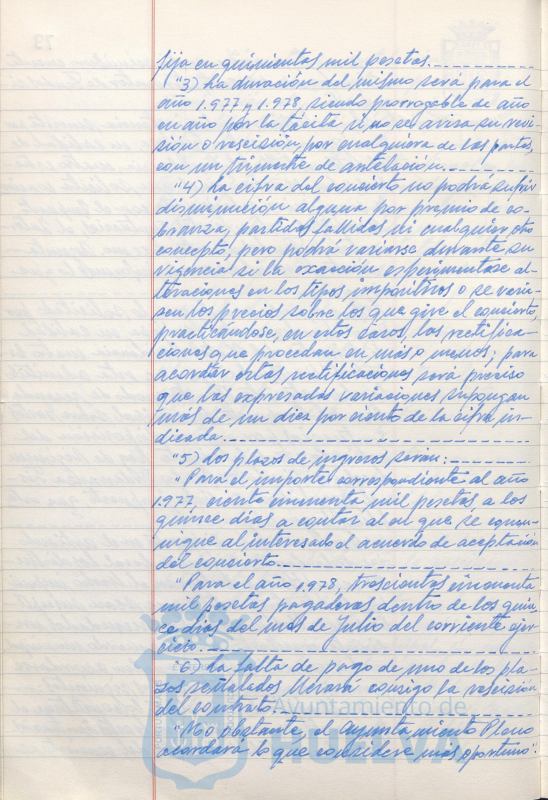 fija en quinientas mil pesetas.
"3) La duración del mismo será para el
año 1.977 y 1.978, siendo prorrogable de año
en año por la tácita si no se avisa su revi-
sión o rescisión, por cualquiera de las partes,
con un trimestre de antelación.
"4) La cifra del concierto no podrá sufrir
disminución alguna por premio de co-
branza, partidas fallidas ni cualquier otro
concepto, pero podrá variarse durante su
vigencia si la exacción experimentase al-
teraciones en los tipos impositivos o se varia-
sen los precios sobre los que gire el concierto,
practicándose, en estos casos, las rectifica-
ciones que procedan en más o menos; para
acordar estas rectificaciones será preciso
que las expresadas variaciones supongan
más de un diez por ciento de la cifra in-
dicada.
"5) Los plazos de ingresos serán:
"Para el importe correspondiente al año
1.977, ciento cincuenta mil pesetas a los
quince días a contar al en que se comu-
nique al interesado el acuerdo de aceptación
del concierto.
"Para el año 1.978, trescientas cincuenta
mil pesetas pagaderas dentro de los quin-
ce días del mes de Julio del corriente ejer-
cicio.
"6) La falta de pago de uno de los pla-
zos señalados llevará consigo la rescisión
del contrato.
Ayuntamiento de
"No obstante, el Ayuntamiento Pleno
acordará lo que considere más oportuno".